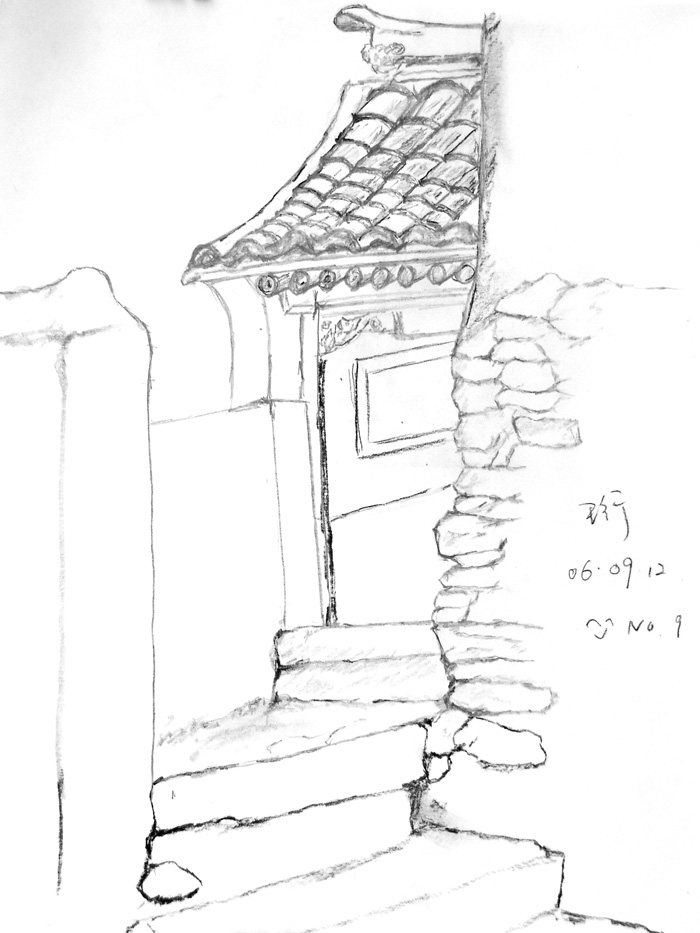 06.09.12
No. 9